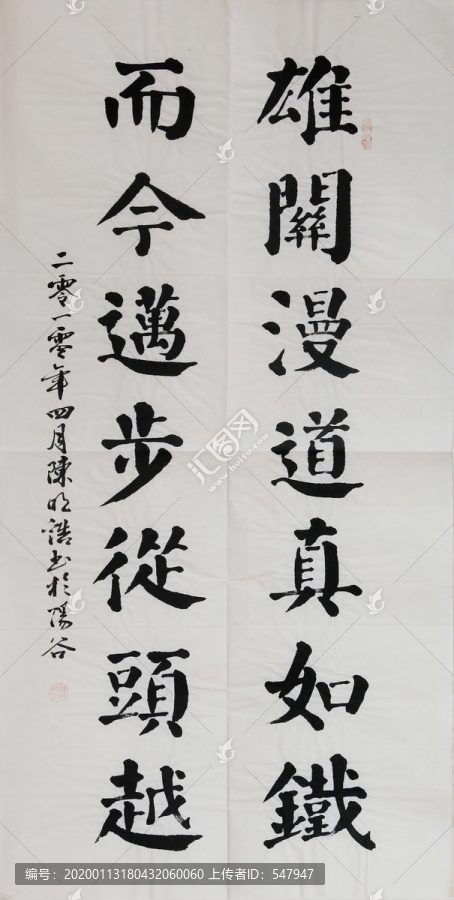 雄關漫道真如鐵
而今邁步從頭越
二零一零年四月陳明浩书於陽谷
汇图网
www.huitu.com
编号:20200113180432060060 上传者ID: 547947